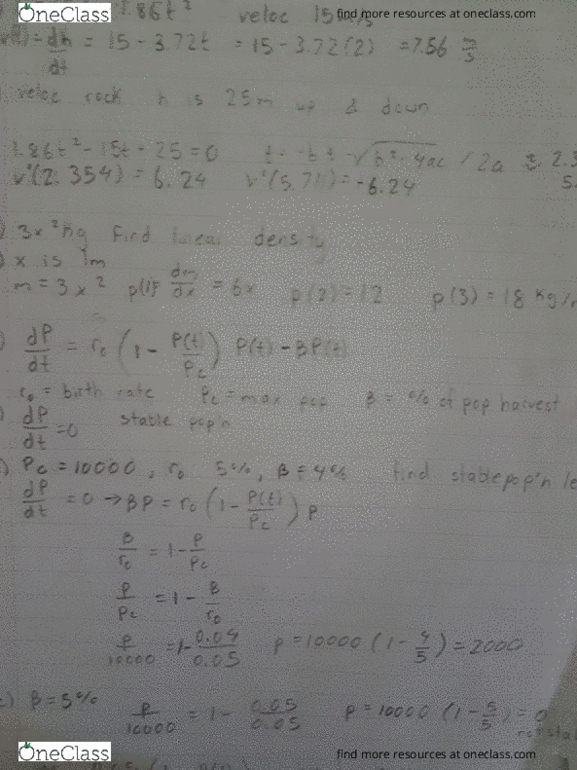 OneClass find more resources at oneclass.com
.86t² veloc 15m/s
dh/dt = 15 - 3.72t = 15 - 3.72(2) = 7.56 m/s
veloc rock h is 25m up & down
1.86t² - 15t + 25 = 0 t = -b ± √b² - 4ac / 2a ≈ 2.3
v'(2.354) = 6.24 v'(5.711) = -6.24 5.
3x² kg Find linear density
x is 1m
m = 3x² p(1) dm/dx = 6x p(2) = 12 p(3) = 18 kg/
dP/dt = r₀ (1 - P(t)/Pc) P(t) - BP(t)
r₀ = birth rate Pc = max pop B = % of pop harvest
dP/dt = 0 stable pop'n
Pc = 10000, r₀ 5%, B = 4% find stable pop'n le
dP/dt = 0 → BP = r₀ (1 - P(t)/Pc) P
B/r₀ = 1 - P/Pc
P/Pc = 1 - B/r₀
P/10000 = 1 - 0.04/0.05 P = 10000 (1 - 4/5) = 2000
c) B = 5% P/10000 = 1 - 0.05/0.05 P = 10000 (1 - 5/5) = 0
OneClass find more resources at oneclass.com